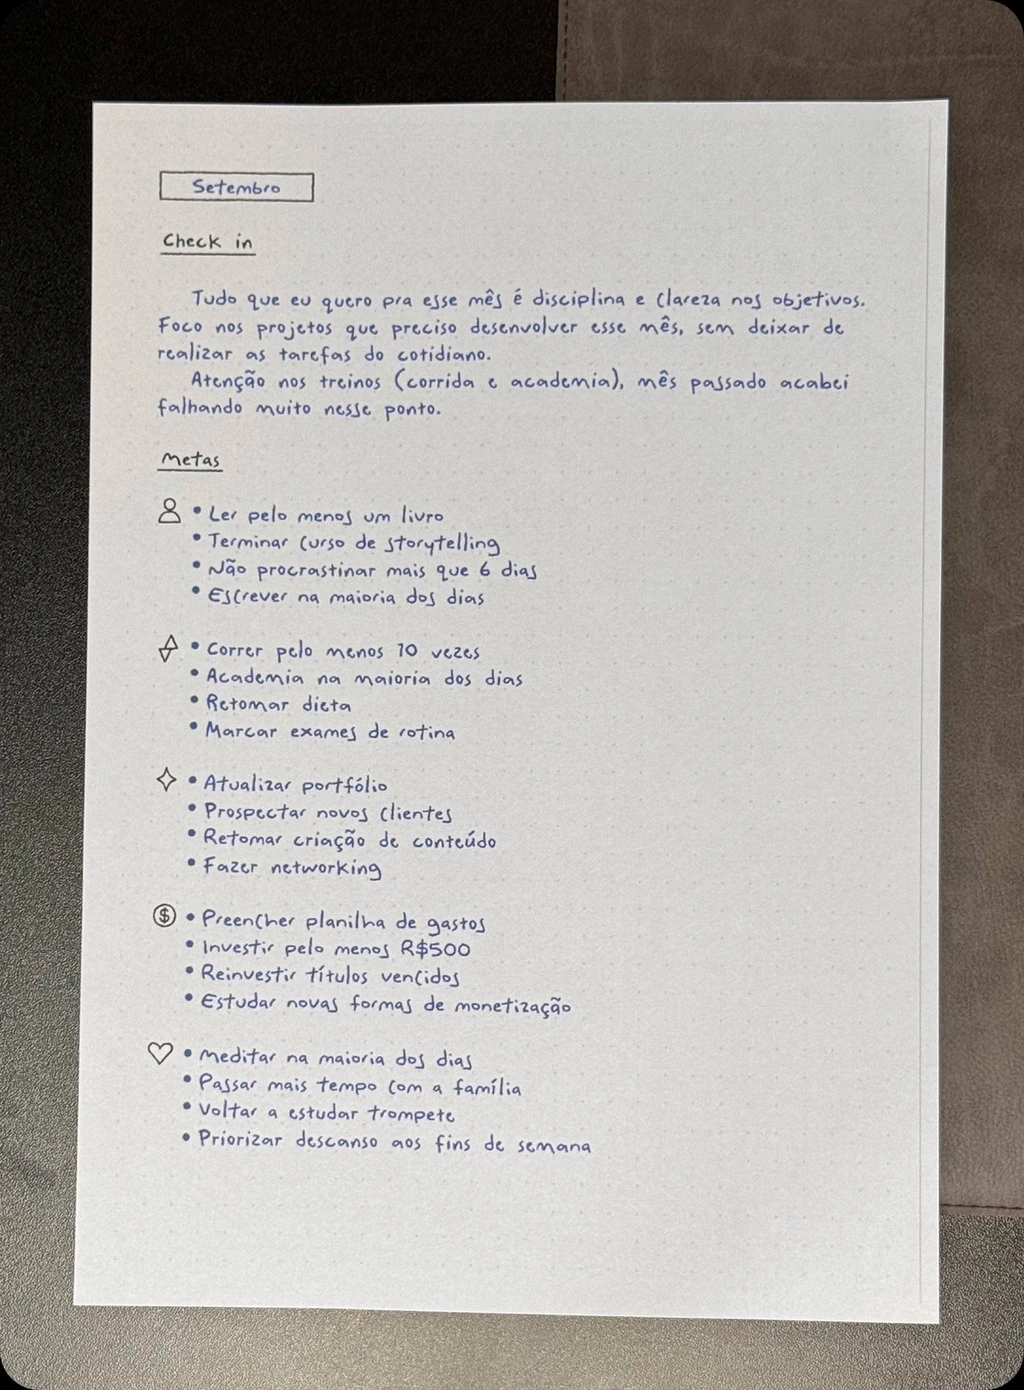 Setembro
Check in
Tudo que eu quero pra esse mês é disciplina e clareza nos objetivos.
Foco nos projetos que preciso desenvolver esse mês, sem deixar de
realizar as tarefas do cotidiano.
Atenção nos treinos (corrida e academia), mês passado acabei
falhando muito nesse ponto.
Metas
• Ler pelo menos um livro
• Terminar curso de storytelling
• Não procrastinar mais que 6 dias
• Escrever na maioria dos dias
• Correr pelo menos 10 vezes
• Academia na maioria dos dias
• Retomar dieta
• Marcar exames de rotina
• Atualizar portfólio
• Prospectar novos clientes
• Retomar criação de conteúdo
• Fazer networking
$ • Preencher planilha de gastos
• Investir pelo menos R$500
• Reinvestir títulos vencidos
• Estudar novas formas de monetização
• Meditar na maioria dos dias
• Passar mais tempo com a família
• Voltar a estudar trompete
• Priorizar descanso aos fins de semana